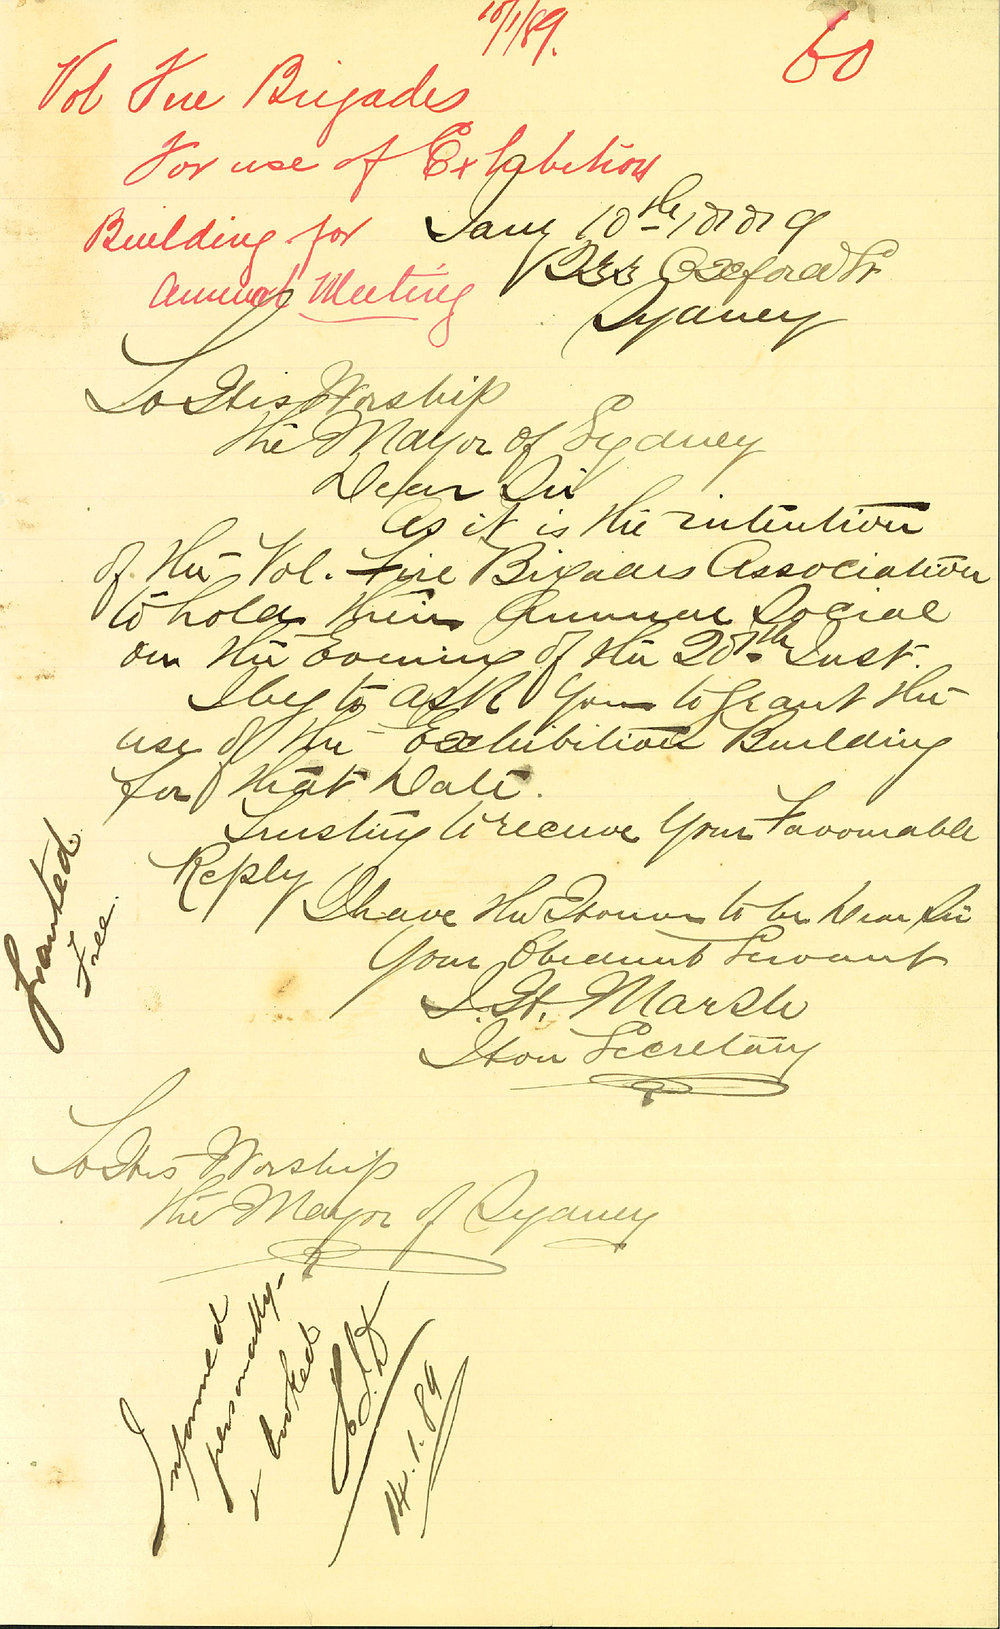 10/1/89.
60
Vol Fire Brigades
For use of Exhibition
Building for
Annual Meeting
Jany 10th 1889
Oxford St
Sydney
To His Worship
the Mayor of Sydney
Dear Sir
As it is the intention
of the Vol. Fire Brigades Association
to hold their Annual Social
on the Evening of the 28th Inst.
I beg to ask you to grant the
use of the Exhibition Building
for that Date.
Trusting to receive your Favourable
Reply
I have the Honor to be Dear Sir
Your Obedient Servant
J. H. Marsh
Hon Secretary
Granted
Free.
To His Worship
the Mayor of Sydney
Informed
personally-
& booked
14.1.89